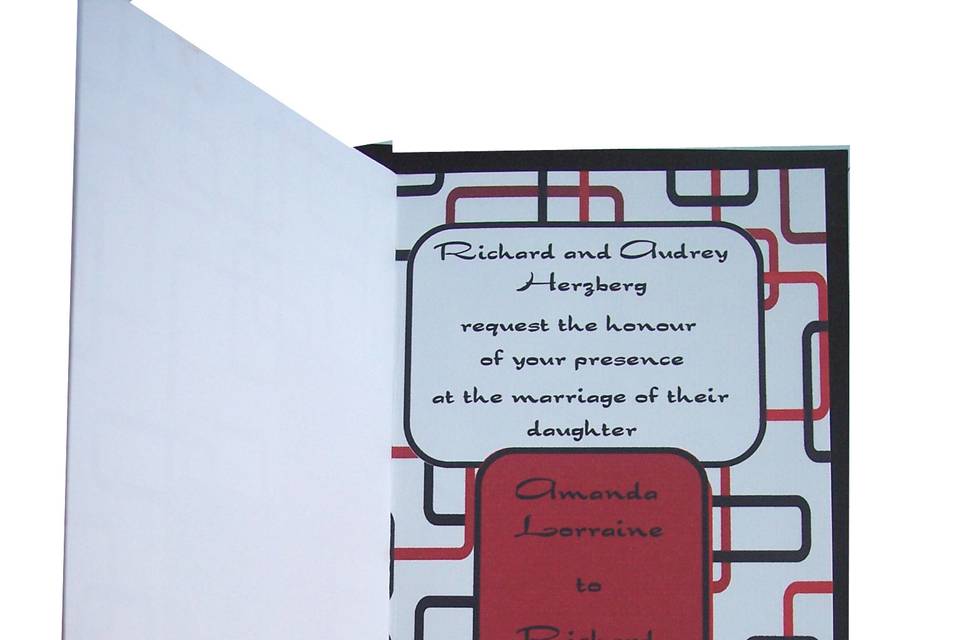 Richard and Audrey
Herzberg
request the honour
of your presence
at the marriage of their
daughter
Amanda
Lorraine
to
Richard